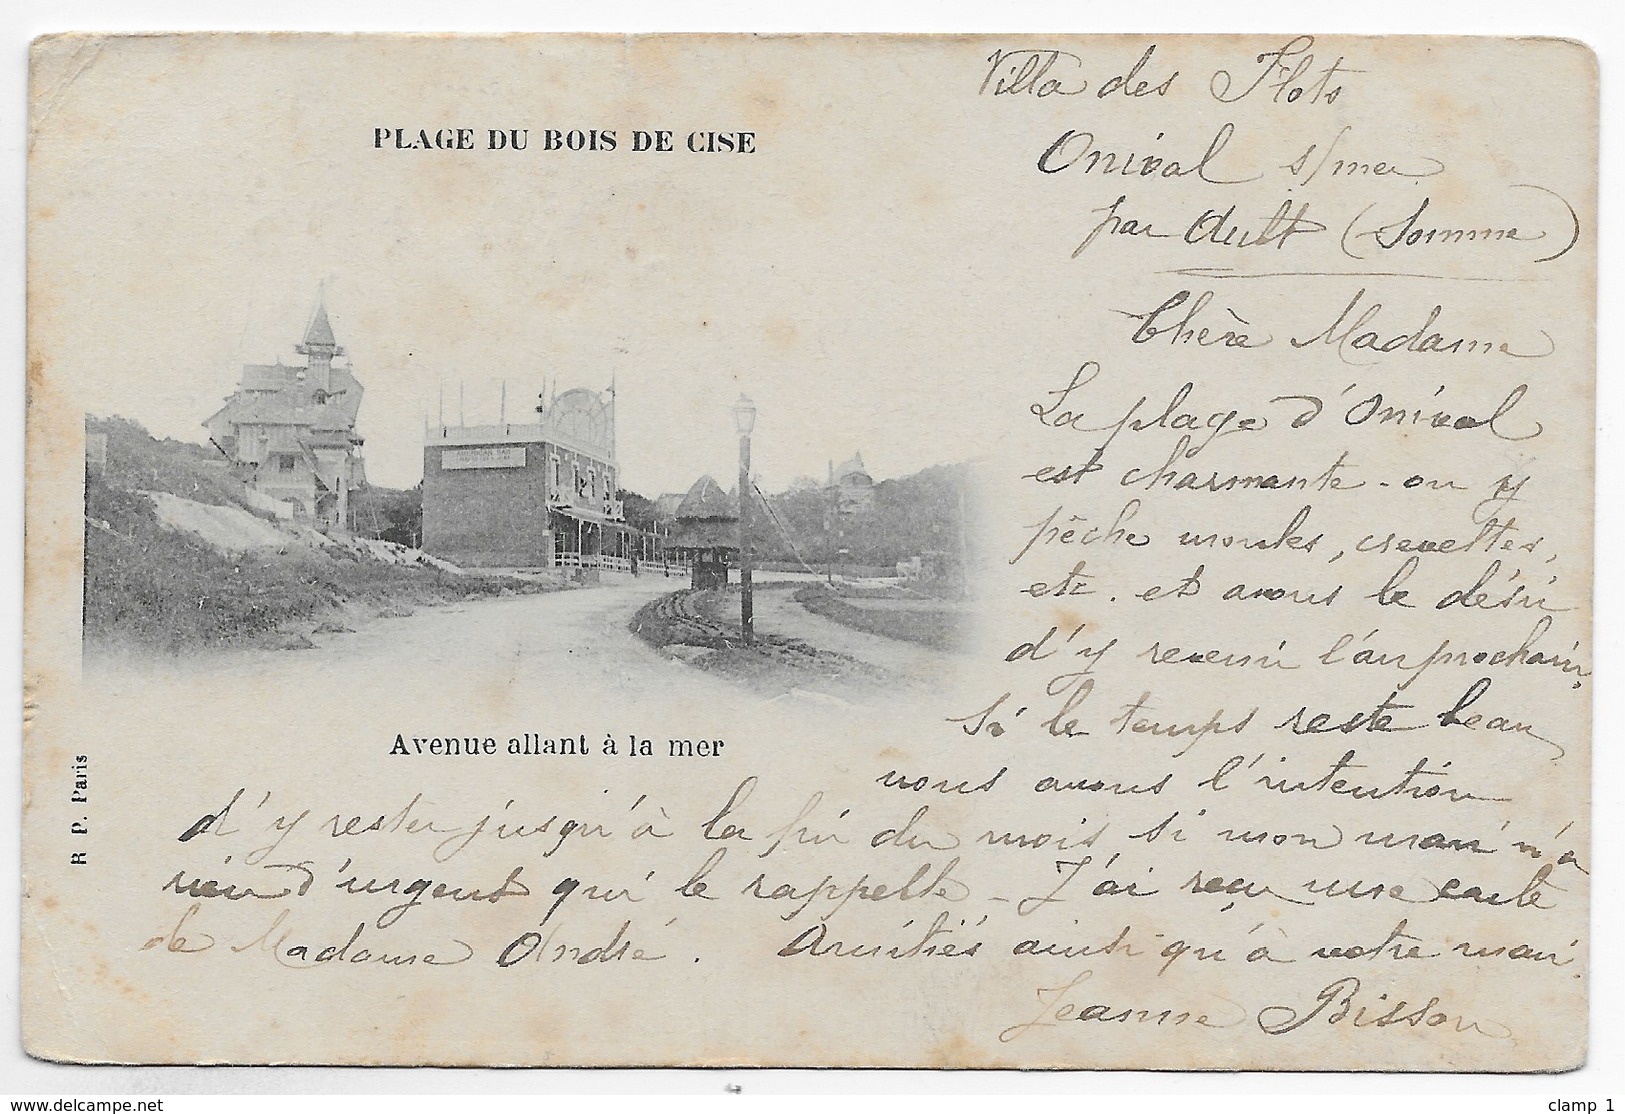 PLAGE DU BOIS DE CISE
Avenue allant à la mer
R. P. Paris
Villa des Flots
Onival s/mer
par Ault (Somme)
Chère Madame
La plage d'Onival
est charmante - on y
pêche moules, crevettes,
etc. et avons le désir
d'y revenir l'an prochain.
Si le temps reste beau
nous avons l'intention
d'y rester jusqu'à la fin du mois si mon mari n'a
rien d'urgent qui le rappelle - J'ai reçu une carte
de Madame André. Amitiés ainsi qu'à votre mari.
Jeanne Bisson
clamp 1